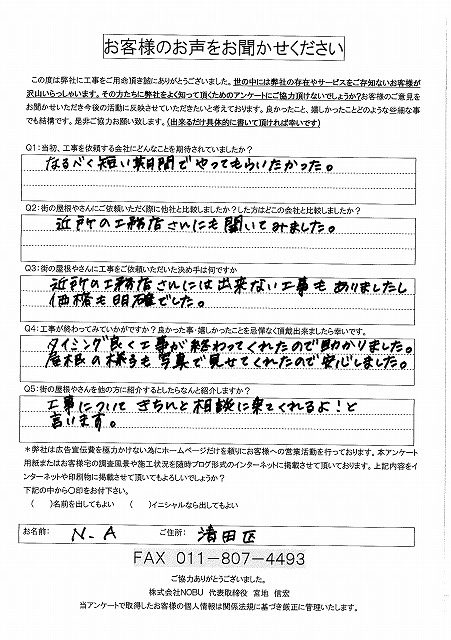 お客様のお声をお聞かせください
この度は弊社に工事をご用命頂き誠にありがとうございました。世の中には弊社の存在やサービスをご存知ないお客様が
沢山いらっしゃいます。その方たちに弊社をよく知って頂くためのアンケートにご協力頂けないでしょうか？お客様のご意見を
お聞かせいただき今後の活動に反映させていただきたいと考えております。良かったこと、嬉しかったことどのような些細な事
でも結構です。是非ご協力お願い致します。（出来るだけ具体的に書いて頂ければ幸いです）
Q1：当初、工事を依頼する会社にどんなことを期待されていましたか？
なるべく短い期間でやってもらいたかった。
Q2：街の屋根やさんにご依頼いただく際に他社と比較しましたか？した方はどこの会社と比較しましたか？
近所の工務店さんにも聞いてみました。
Q3：街の屋根やさんに工事をご依頼いただいた決め手は何ですか
近所の工務店さんには出来ない工事もありましたし
価格も明確でした。
Q4：工事が終わってみていかがですか？良かった事・嬉しかったことを忌憚なく頂戴出来ましたら幸いです。
タイミング良く工事が終わってくれたので助かりました。
屋根の様子も写真で見せてくれたので安心しました。
Q5：街の屋根やさんを他の方に紹介するとしたらなんと紹介しますか？
工事についてきちんと相談に来てくれるよ！と
言います。
＊弊社は広告宣伝費を極力かけない為にホームページだけを頼りにお客様への営業活動を行っております。本アンケート
用紙またはお客様宅の調査風景や施工状況を随時ブログ形式のインターネットに掲載させて頂いております。上記内容をイ
ンターネットや印刷物に掲載させて頂いてもよろしいでしょうか？
下記の中から〇印をお付け下さい。
（　）名前を出してもよい　（　）イニシャルなら出してもよい
お名前：　N.A　ご住所：　清田区
FAX 011-807-4493
ご協力ありがとうございました。
株式会社NOBU 代表取締役 宮地 信宏
当アンケートで取得したお客様の個人情報は関係法規に基づき厳正に管理いたします。